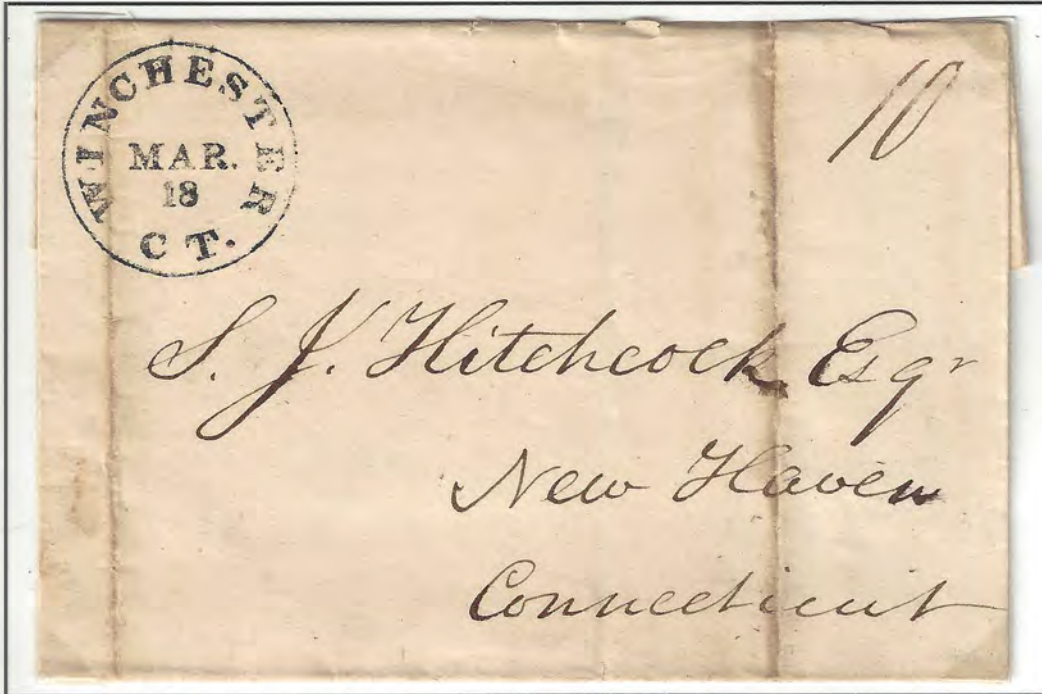 WINCHESTER
MAR.
18
CT.
10
S. J. Hitchcock Esqr
New Haven
Connecticut